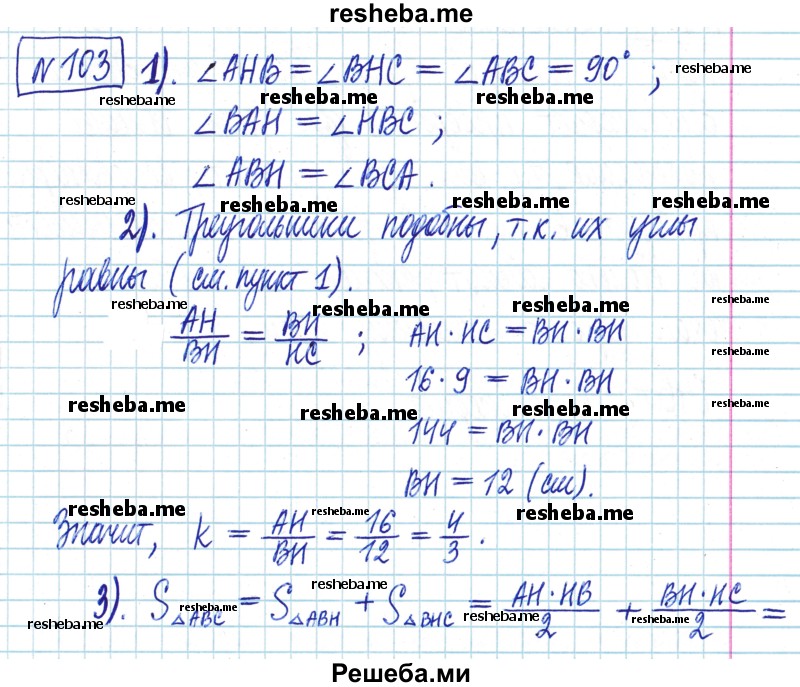 resheba.me
№ 103 1). ∠AHB = ∠BHC = ∠ABC = 90° ; resheba.me
resheba.me resheba.me resheba.me
∠BAH = ∠HBC ;
∠ABH = ∠BCA .
resheba.me resheba.me resheba.me resheba.me
2). Треугольники подобны, т.к. их углы
равны (см. пункт 1).
resheba.me resheba.me resheba.me resheba.me
AH/BH = BH/HC ; AH · HC = BH · BH
resheba.me
16 · 9 = BH · BH
resheba.me resheba.me resheba.me resheba.me
144 = BH · BH
BH = 12 (см).
resheba.me resheba.me resheba.me
Значит, k = AH/BH = 16/12 = 4/3 .
resheba.me
3). S△ABC = S△ABH + S△BHC = AH·HB/2 + BH·HC/2 =
resheba.me resheba.me resheba.me resheba.me
Решеба.ми